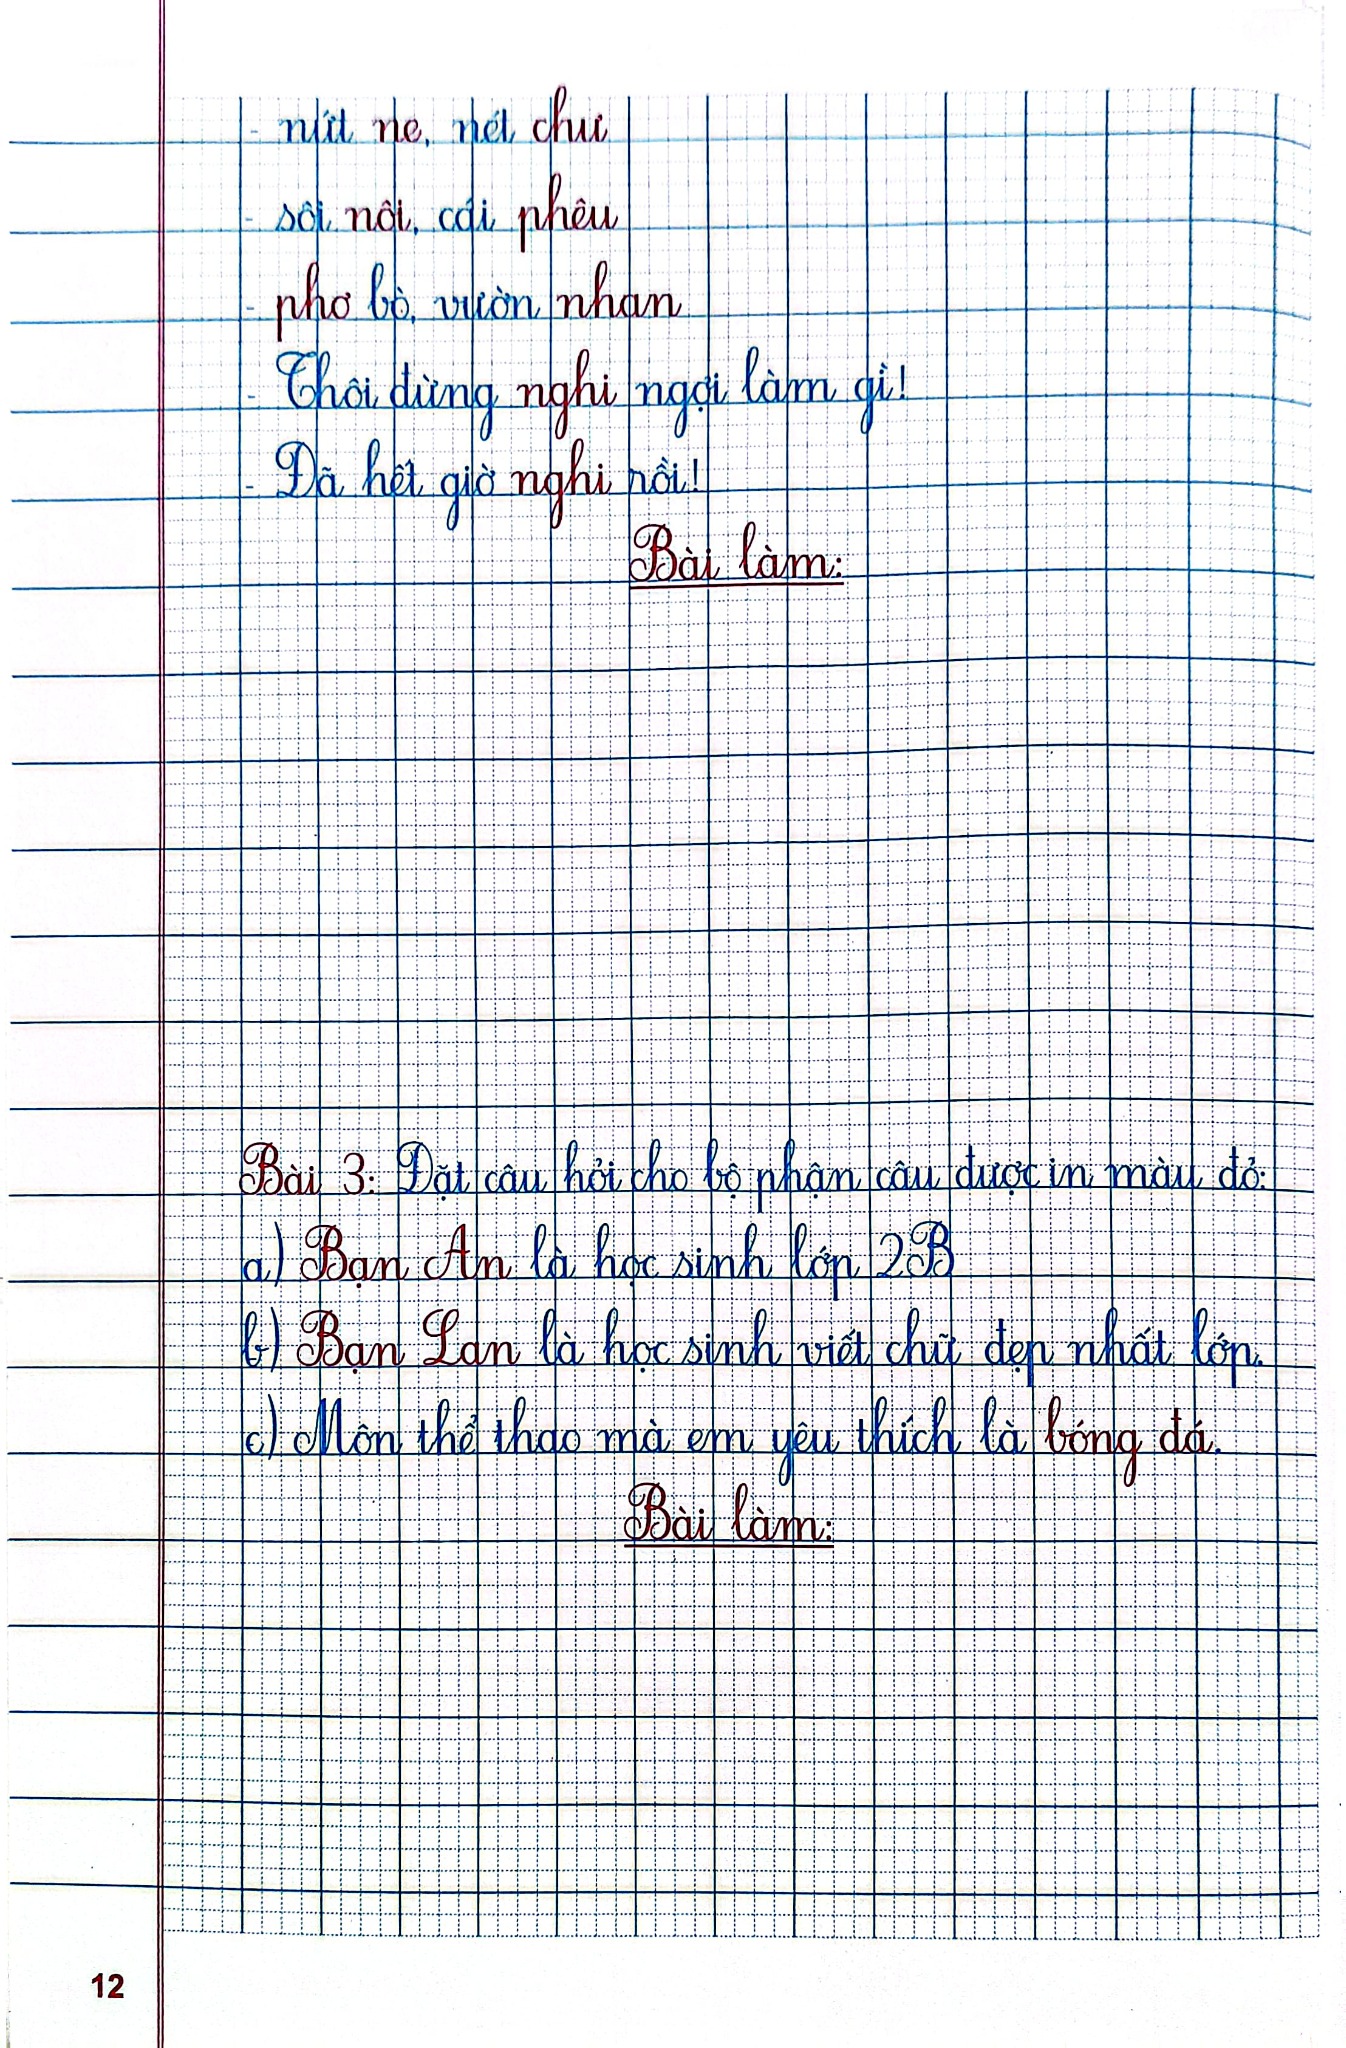 - nứt ne, nét chư
- sôi nôi, cái phêu
- phơ bò, vườn nhan
- Thôi đừng nghi ngợi làm gì!
- Đã hết giờ nghi rồi!
Bài làm:
Bài 3: Đặt câu hỏi cho bộ phận câu được in màu đỏ:
a) Bạn An là học sinh lớp 2B
b) Bạn Lan là học sinh viết chữ đẹp nhất lớp.
c) Môn thể thao mà em yêu thích là bóng đá.
Bài làm:
12